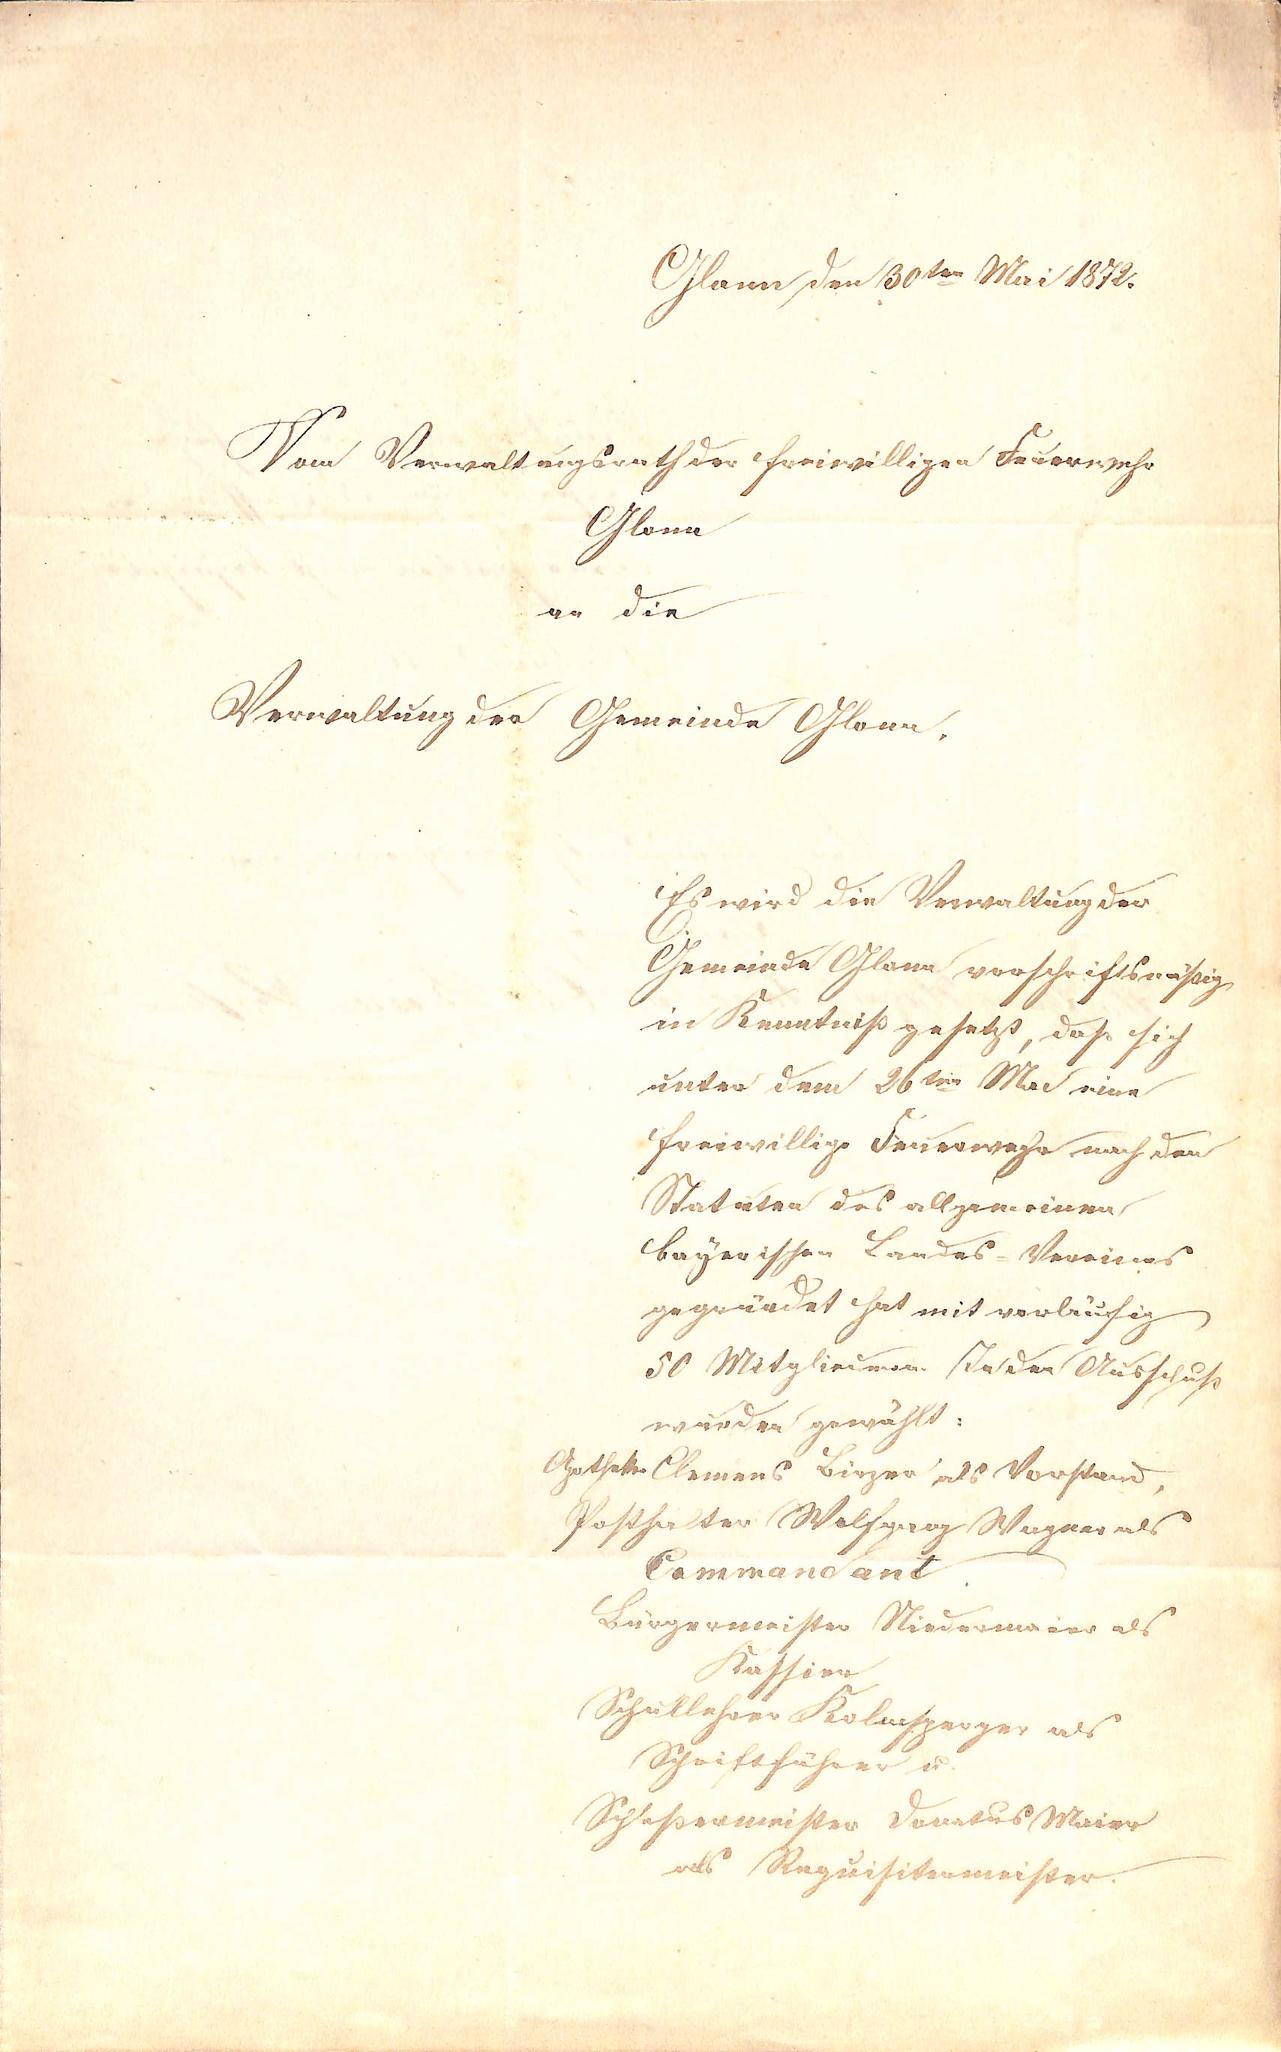 Glonn den 30ten Mai 1872.
Vom Verwaltungsrath der freiwilligen Feuerwehr
Glonn
an die
Verwaltung der Gemeinde Glonn.
Es wird die Verwaltung der
Gemeinde Glonn vorschriftsmäßig
in Kenntniß gesetzt, daß sich
unter dem 26ten Mai eine
freiwillige Feuerwehr nach den
Statuten des allgemeinen
bayerischen Landes-Vereines
gegründet hat mit vorläufig
50 Mitgliedern. In den Ausschuß
wurden gewählt:
Apotheker Clemens Birzer als Vorstand,
Posthalter Wolfgang Wagner als
Commandant
Bürgermeister Niedermaier als
Kassier
Schullehrer Kolmsperger als
Schriftführer u.
Schloßermeister Donatus Maier
als Requisitenmeister.